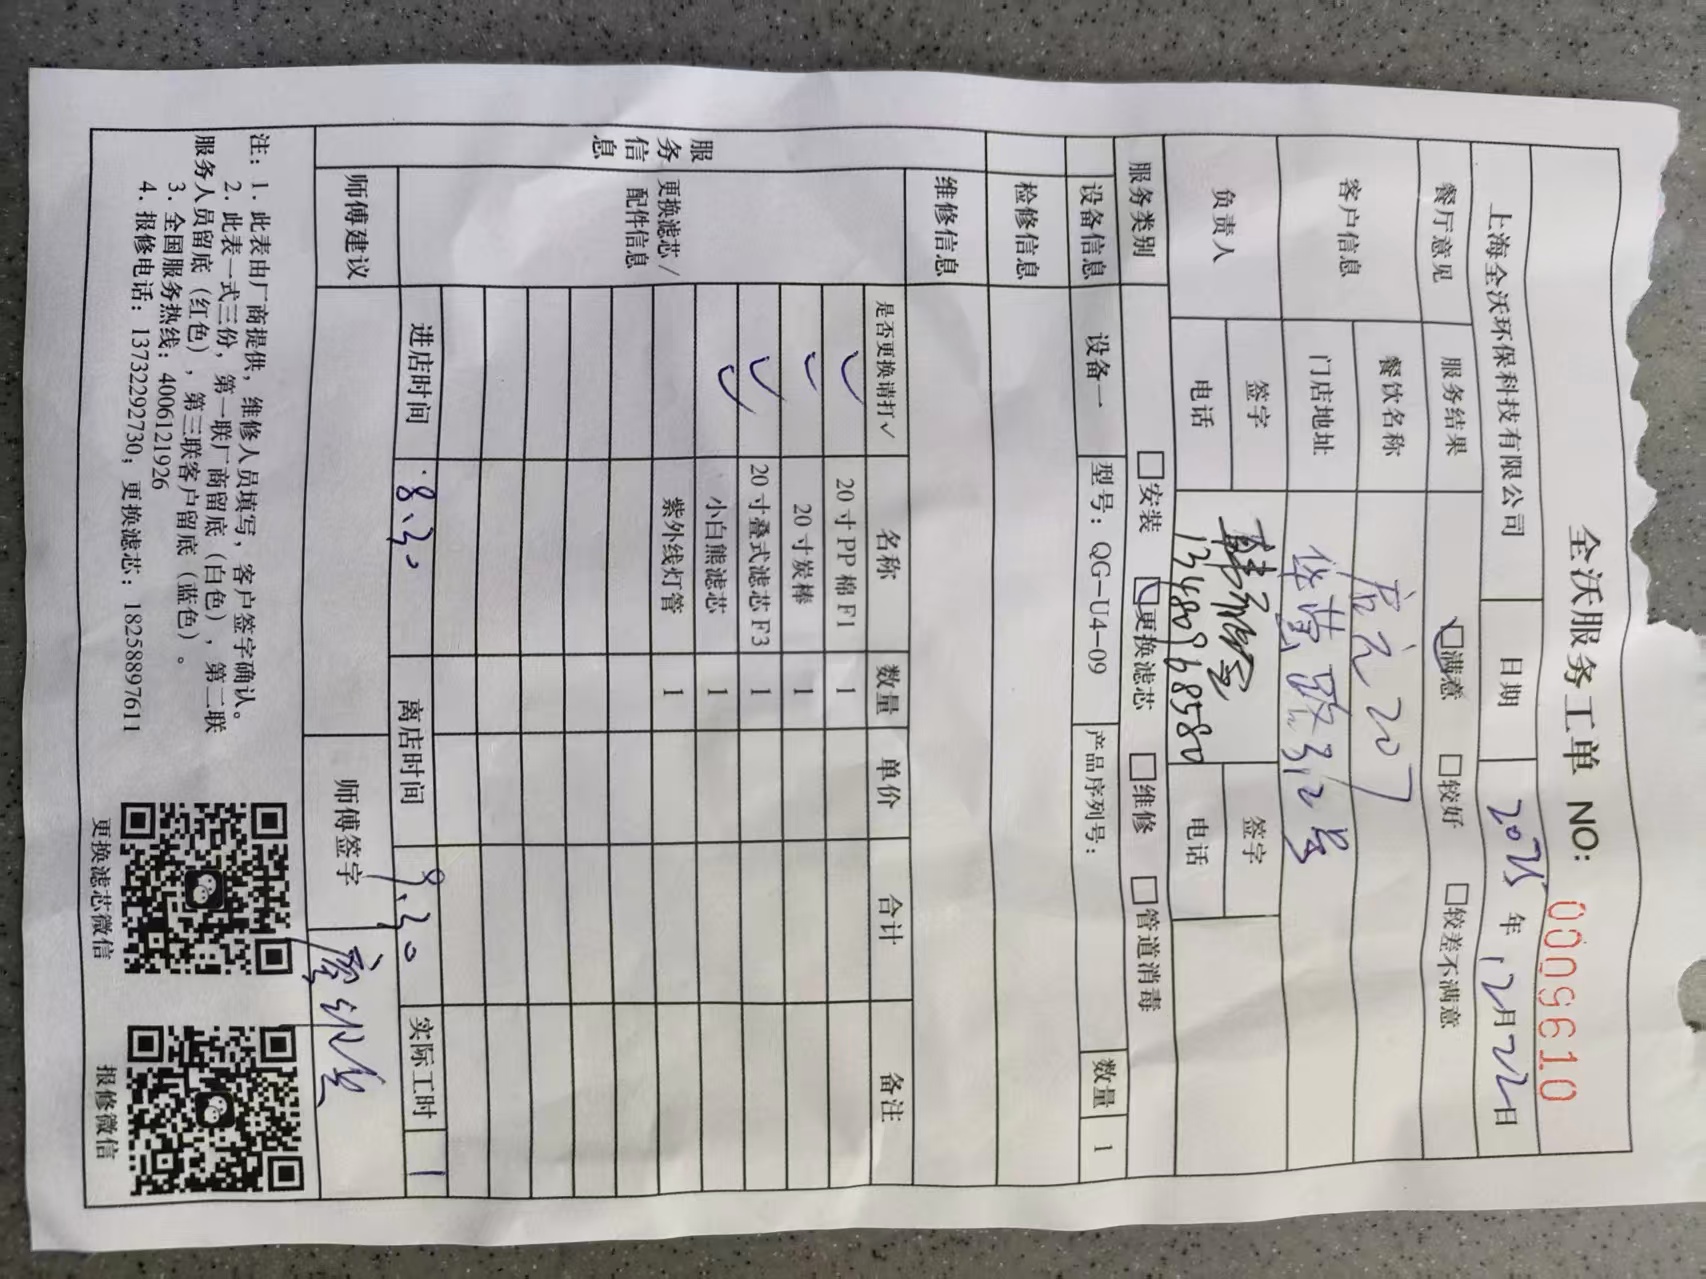 全沃服务工单 NO: 00096610
上海全沃环保科技有限公司 日期 2025年12月22日
餐厅意见 服务结果 ☑满意 □较好 □较差不满意
客户信息 餐饮名称
门店地址 路312号
负责人 签字 签字
电话 13489698580 电话
服务类别 □安装 ☑更换滤芯 □维修 □管道消毒
设备信息 设备一 型号：QG-U4-09 产品序列号： 数量 1
检修信息
维修信息
服务信息
更换滤芯/配件信息
是否更换请打✓ 名称 数量 单价 合计 备注
✓ 20寸PP棉F1 1
✓ 20寸炭棒 1
✓ 20寸叠式滤芯F3 1
✓ 小白熊滤芯 1
紫外线灯管 1
进店时间 8.30 离店时间 9.30 实际工时 1
师傅建议 师傅签字
注：1．此表由厂商提供，维修人员填写，客户签字确认。
2．此表一式三份，第一联厂商留底（白色），第二联
服务人员留底（红色），第三联客户留底（蓝色）。
3．全国服务热线：4006121926
4．报修电话：13732292730，更换滤芯：18258897611
更换滤芯微信 报修微信